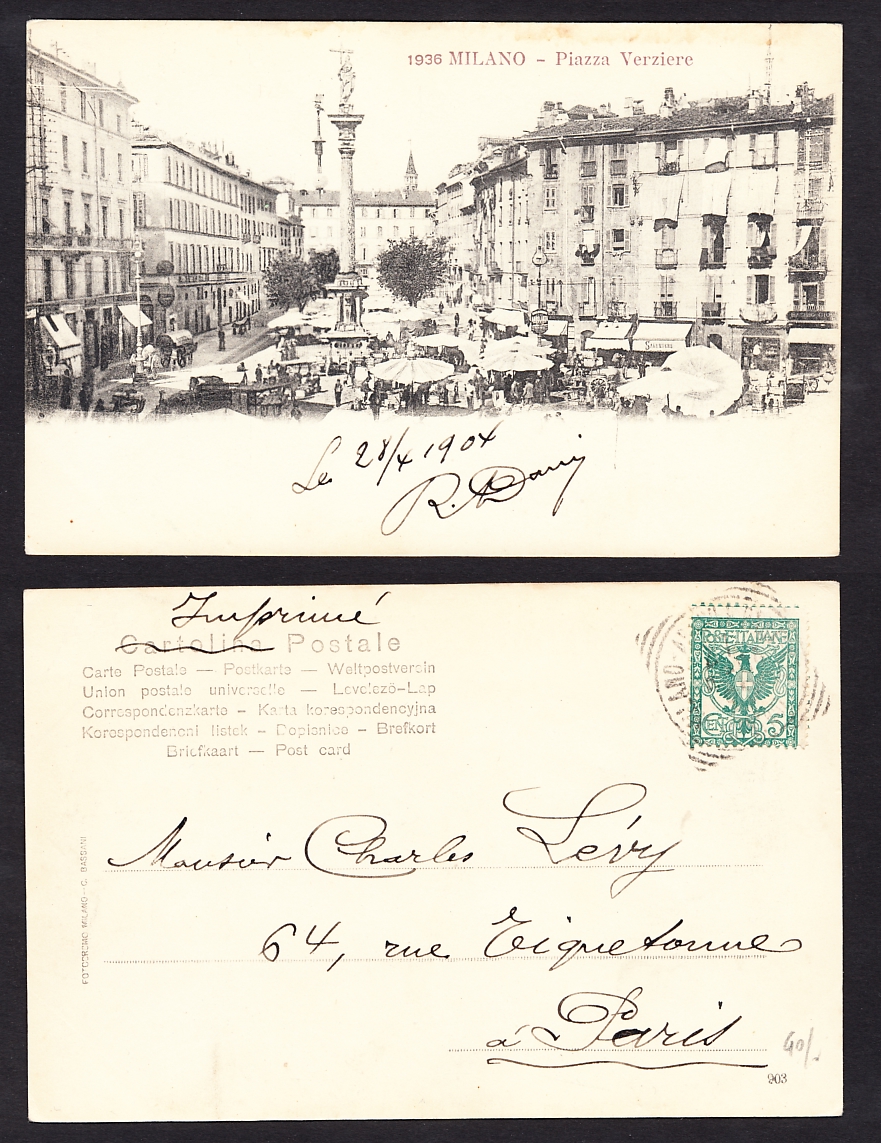 1936 MILANO - Piazza Verziere
Le 28/4 1904
Imprimé
Cartolina Postale
Carte Postale — Postkarte — Weltpostverein
Union postale universelle — Levelezö-Lap
Correspondenzkarte - Karta korespondencyjna
Korespondencni listek - Dopisnice - Brefkort
Briefkaart — Post card
POSTE ITALIANE
CENT 5
Monsieur Charles Lévy
64, rue Tiquetonne
à Paris
40/-
903
FOTOCROMO MILANO - C. BASSANI